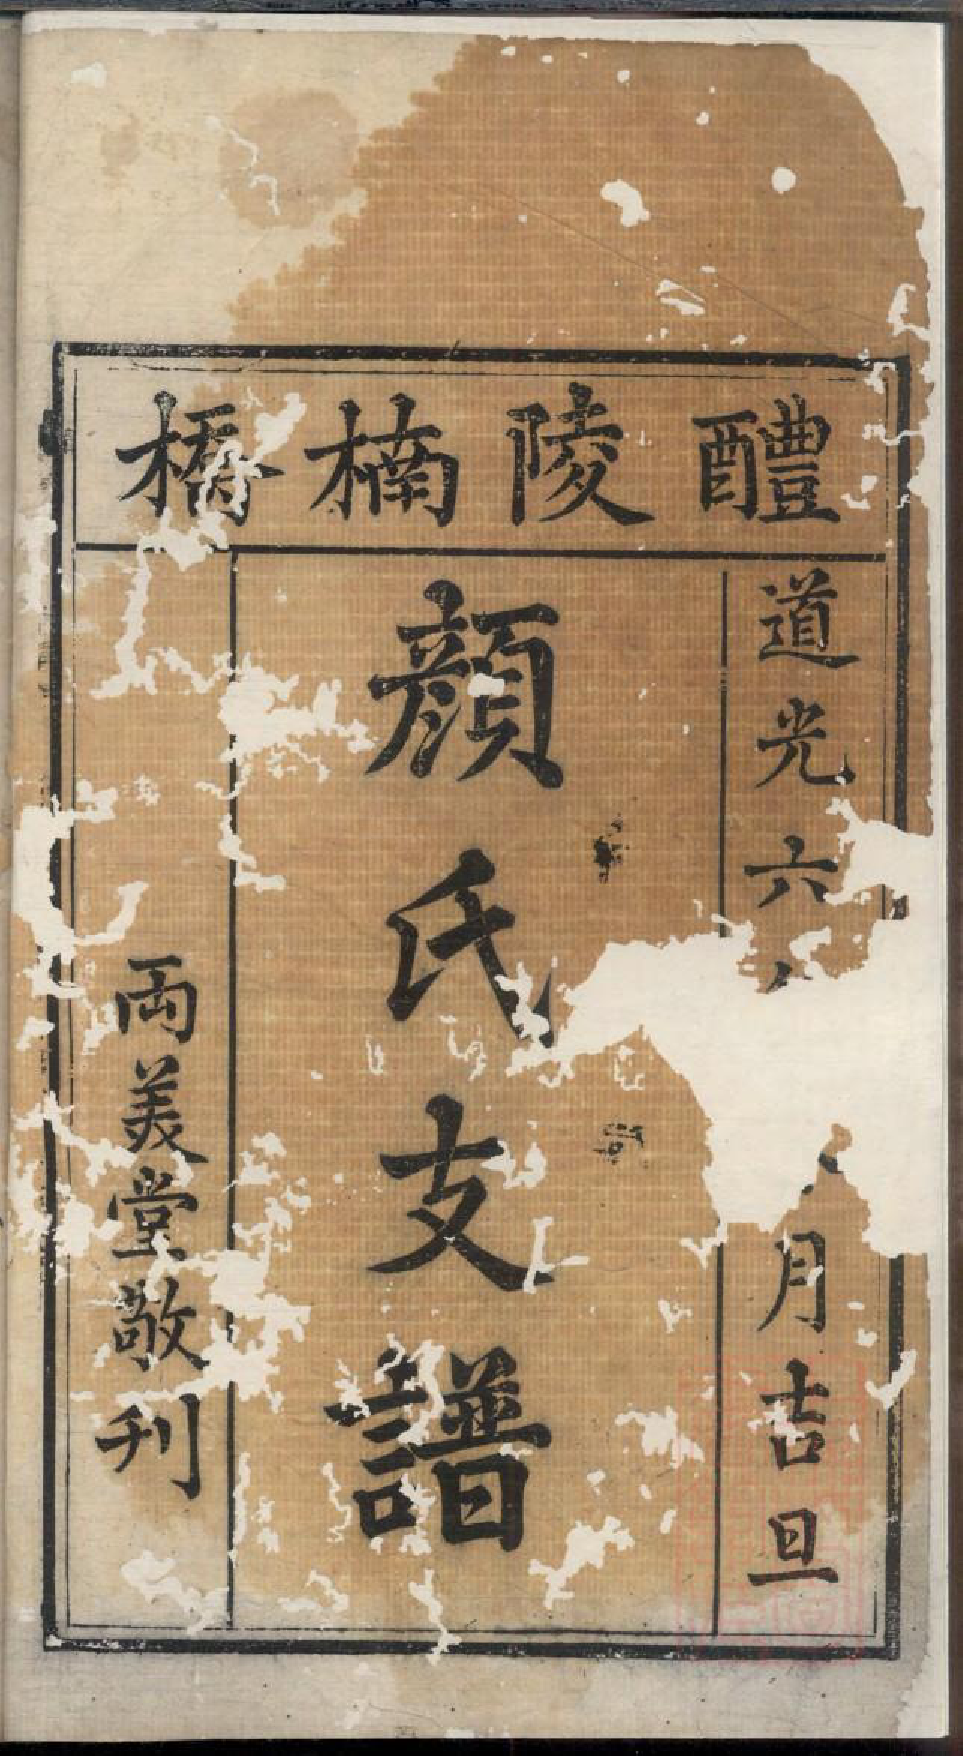 醴陵楠橋
道光六
月吉旦
顏氏支譜
両美堂敬刊